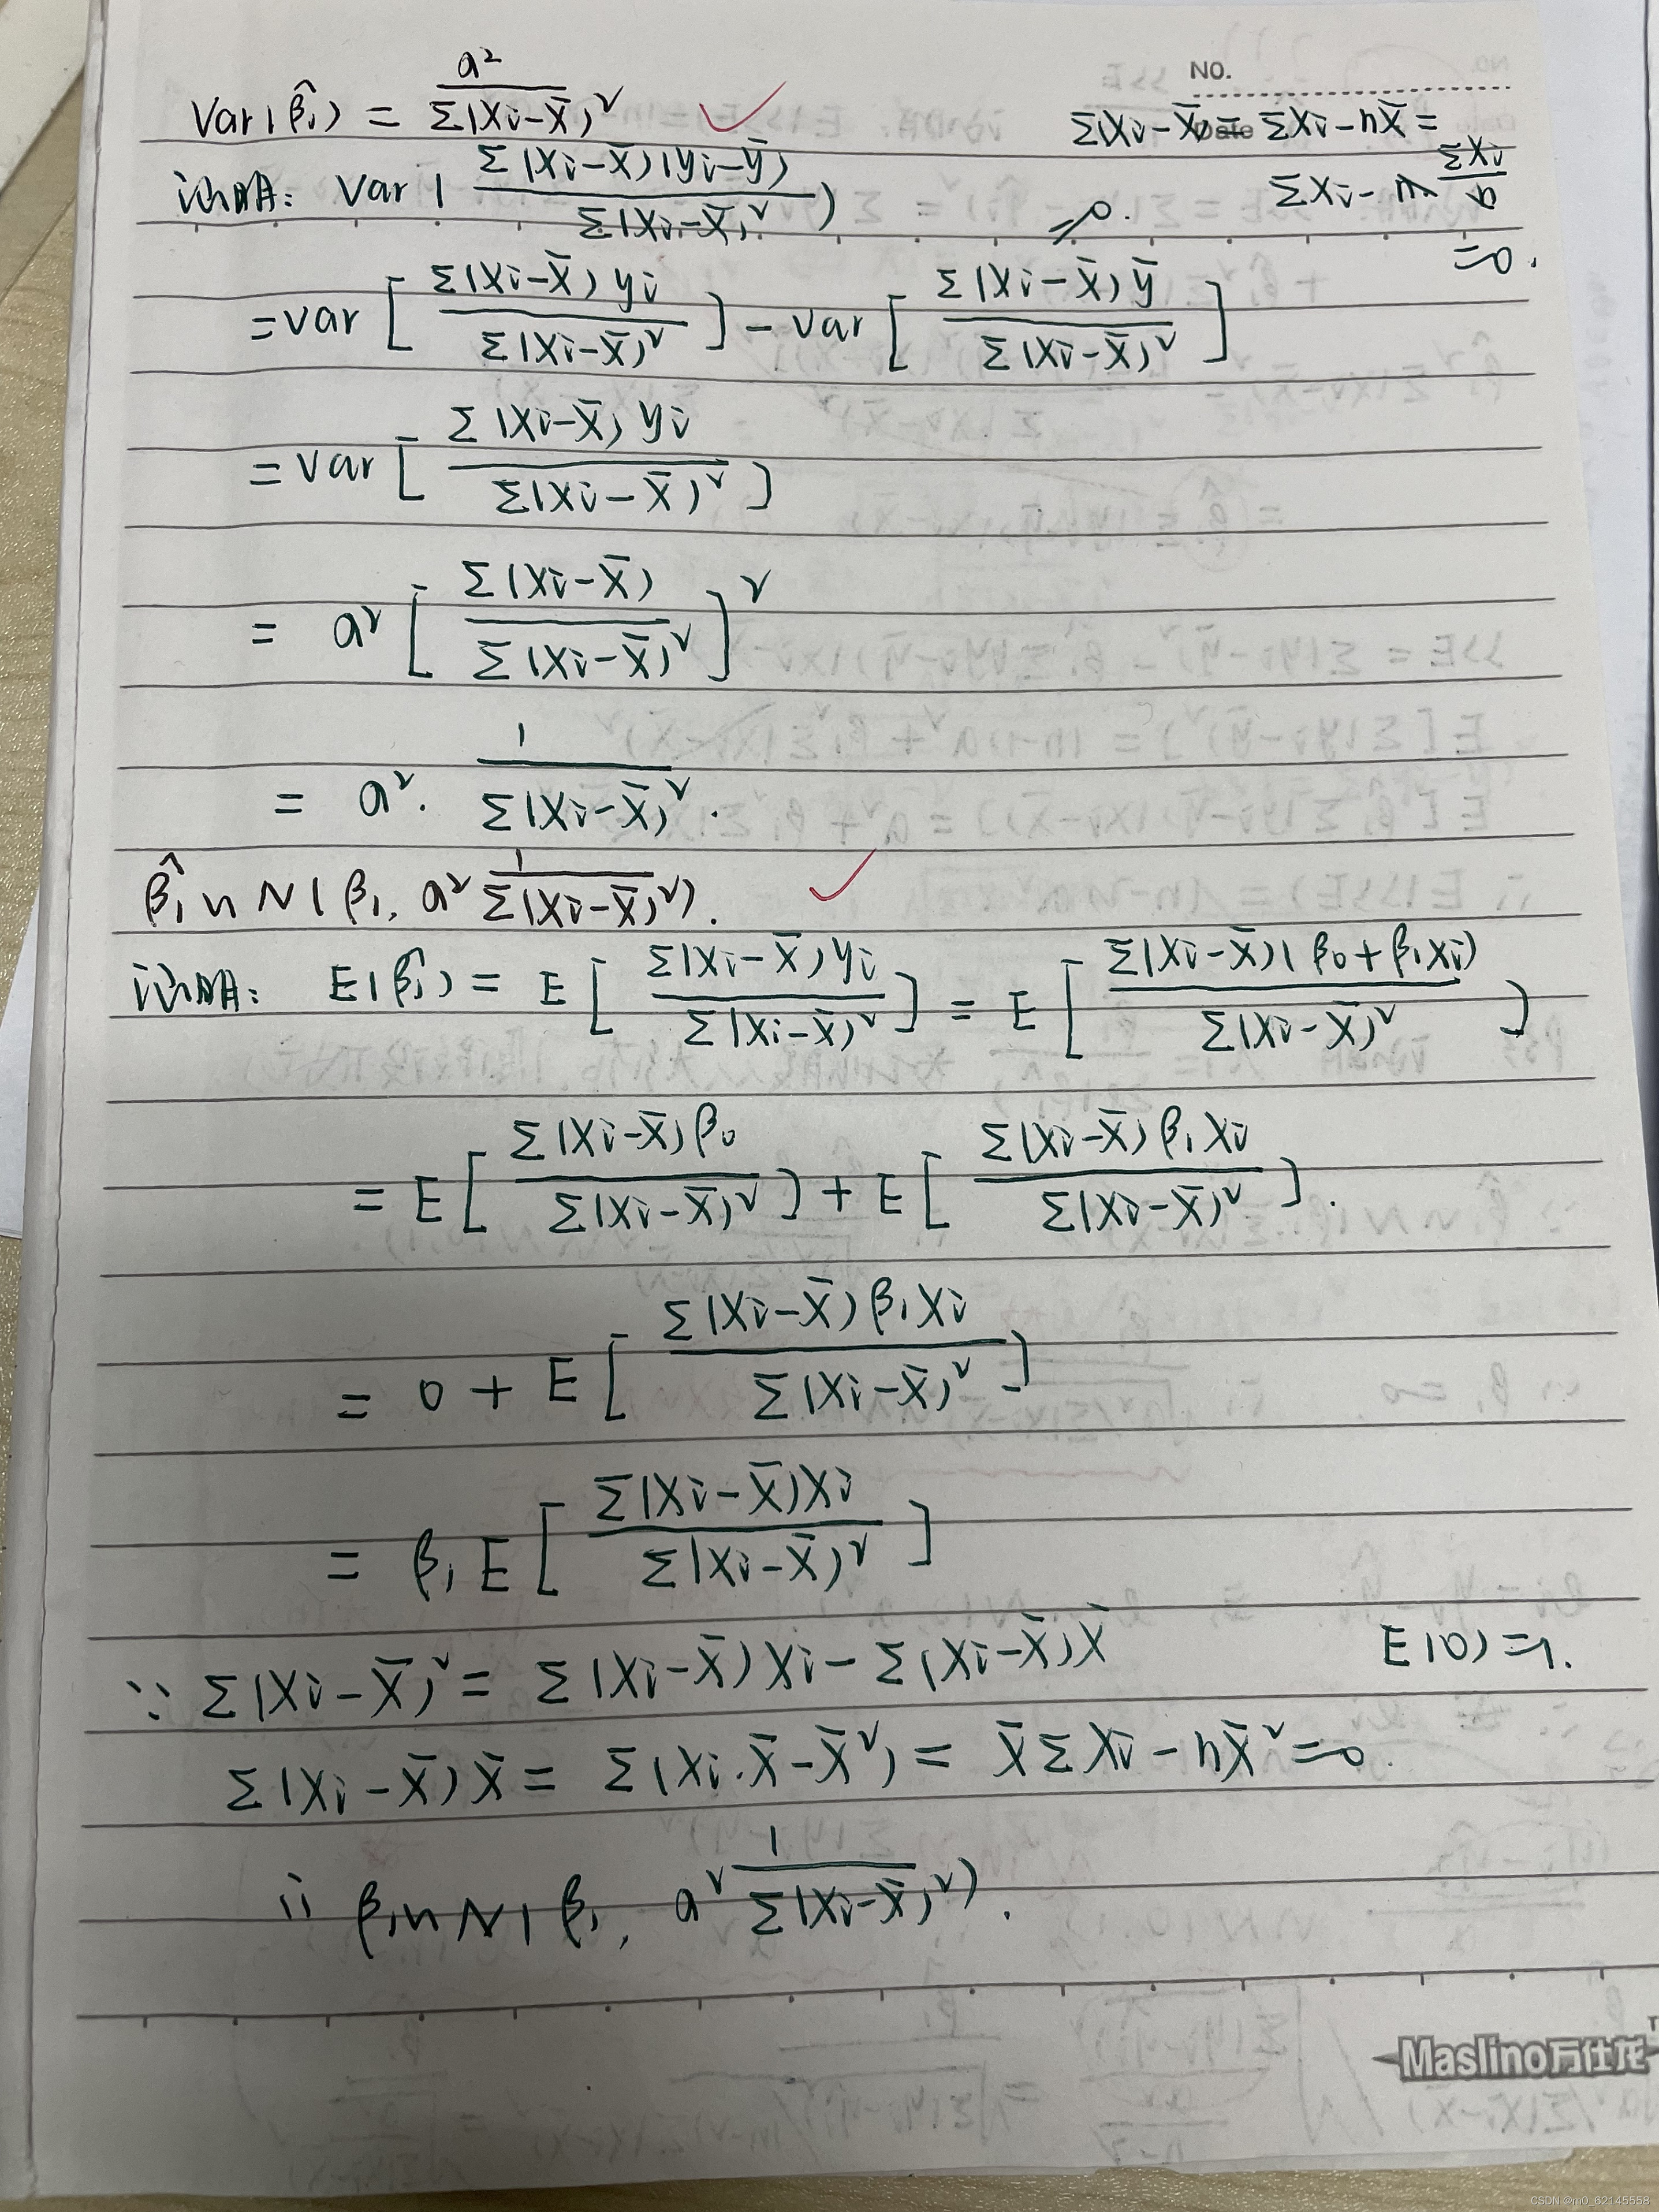 NO.
Date
Var(β̂₁) = a² / Σ(Xi-X̄)² ✓
Σ(Xi-X̄) = ΣXi-nX̄ =
ΣXi - n ΣXi / n
=0.
证明: Var( Σ(Xi-X̄)(yi-ȳ) / Σ(Xi-X̄)² )
=0.
=Var[ Σ(Xi-X̄)yi / Σ(Xi-X̄)² ] - Var[ Σ(Xi-X̄)ȳ / Σ(Xi-X̄)² ]
=Var[ Σ(Xi-X̄)yi / Σ(Xi-X̄)² ]
= a² [ Σ(Xi-X̄) / Σ(Xi-X̄)² ]²
= a². 1 / Σ(Xi-X̄)².
β̂₁ ~ N(β₁, a² 1 / Σ(Xi-X̄)²). ✓
证明: E(β̂₁) = E[ Σ(Xi-X̄)yi / Σ(Xi-X̄)² ] = E[ Σ(Xi-X̄)(β₀+β₁Xi) / Σ(Xi-X̄)² ]
= E[ Σ(Xi-X̄)β₀ / Σ(Xi-X̄)² ] + E[ Σ(Xi-X̄)β₁Xi / Σ(Xi-X̄)² ].
= 0 + E[ Σ(Xi-X̄)β₁Xi / Σ(Xi-X̄)² ]
= β₁E[ Σ(Xi-X̄)Xi / Σ(Xi-X̄)² ]
∵ Σ(Xi-X̄)² = Σ(Xi-X̄)Xi - Σ(Xi-X̄)X̄
E(0)=1.
Σ(Xi-X̄)X̄ = Σ(Xi.X̄-X̄²) = X̄ΣXi - nX̄²=0.
∴ β₁ ~ N(β₁, a² 1 / Σ(Xi-X̄)²).
Maslino万仕龙
CSDN @m0_62145558